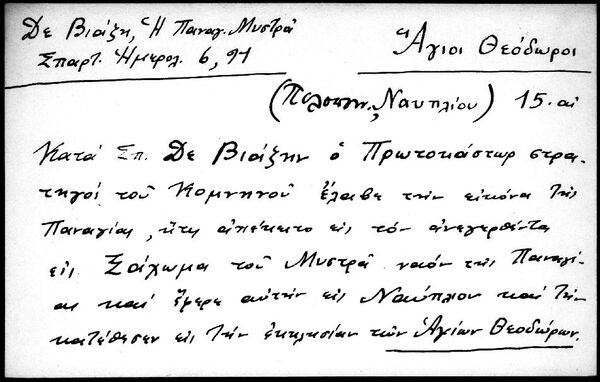 Δε Βιάζη, Ἡ Παναγ. Μυστρᾶ
Σπαρτ. Ἡμερολ. 6, 91
Ἅγιοι Θεόδωροι
(Πελοπον., Ναυπλίου) 15. αἰ
Κατά Σπ. Δε Βιάζην ὁ Πρωτοκάστωρ στρα-
τηγός τοῦ Κομνηνοῦ ἔλαβε τήν εἰκόνα τῆς
Παναγίας, ἥτις ἀπέκειτο εἰς τόν ἀνεγερθέντα
εἰς τοῦ Μυστρᾶ ναόν τῆς Παναγί-
ας καί ἔφερε αὐτήν εἰς Ναύπλιον καί τήν
κατέθεσεν εἰς τήν ἐκκλησίαν τῶν Ἁγίων Θεοδώρων.